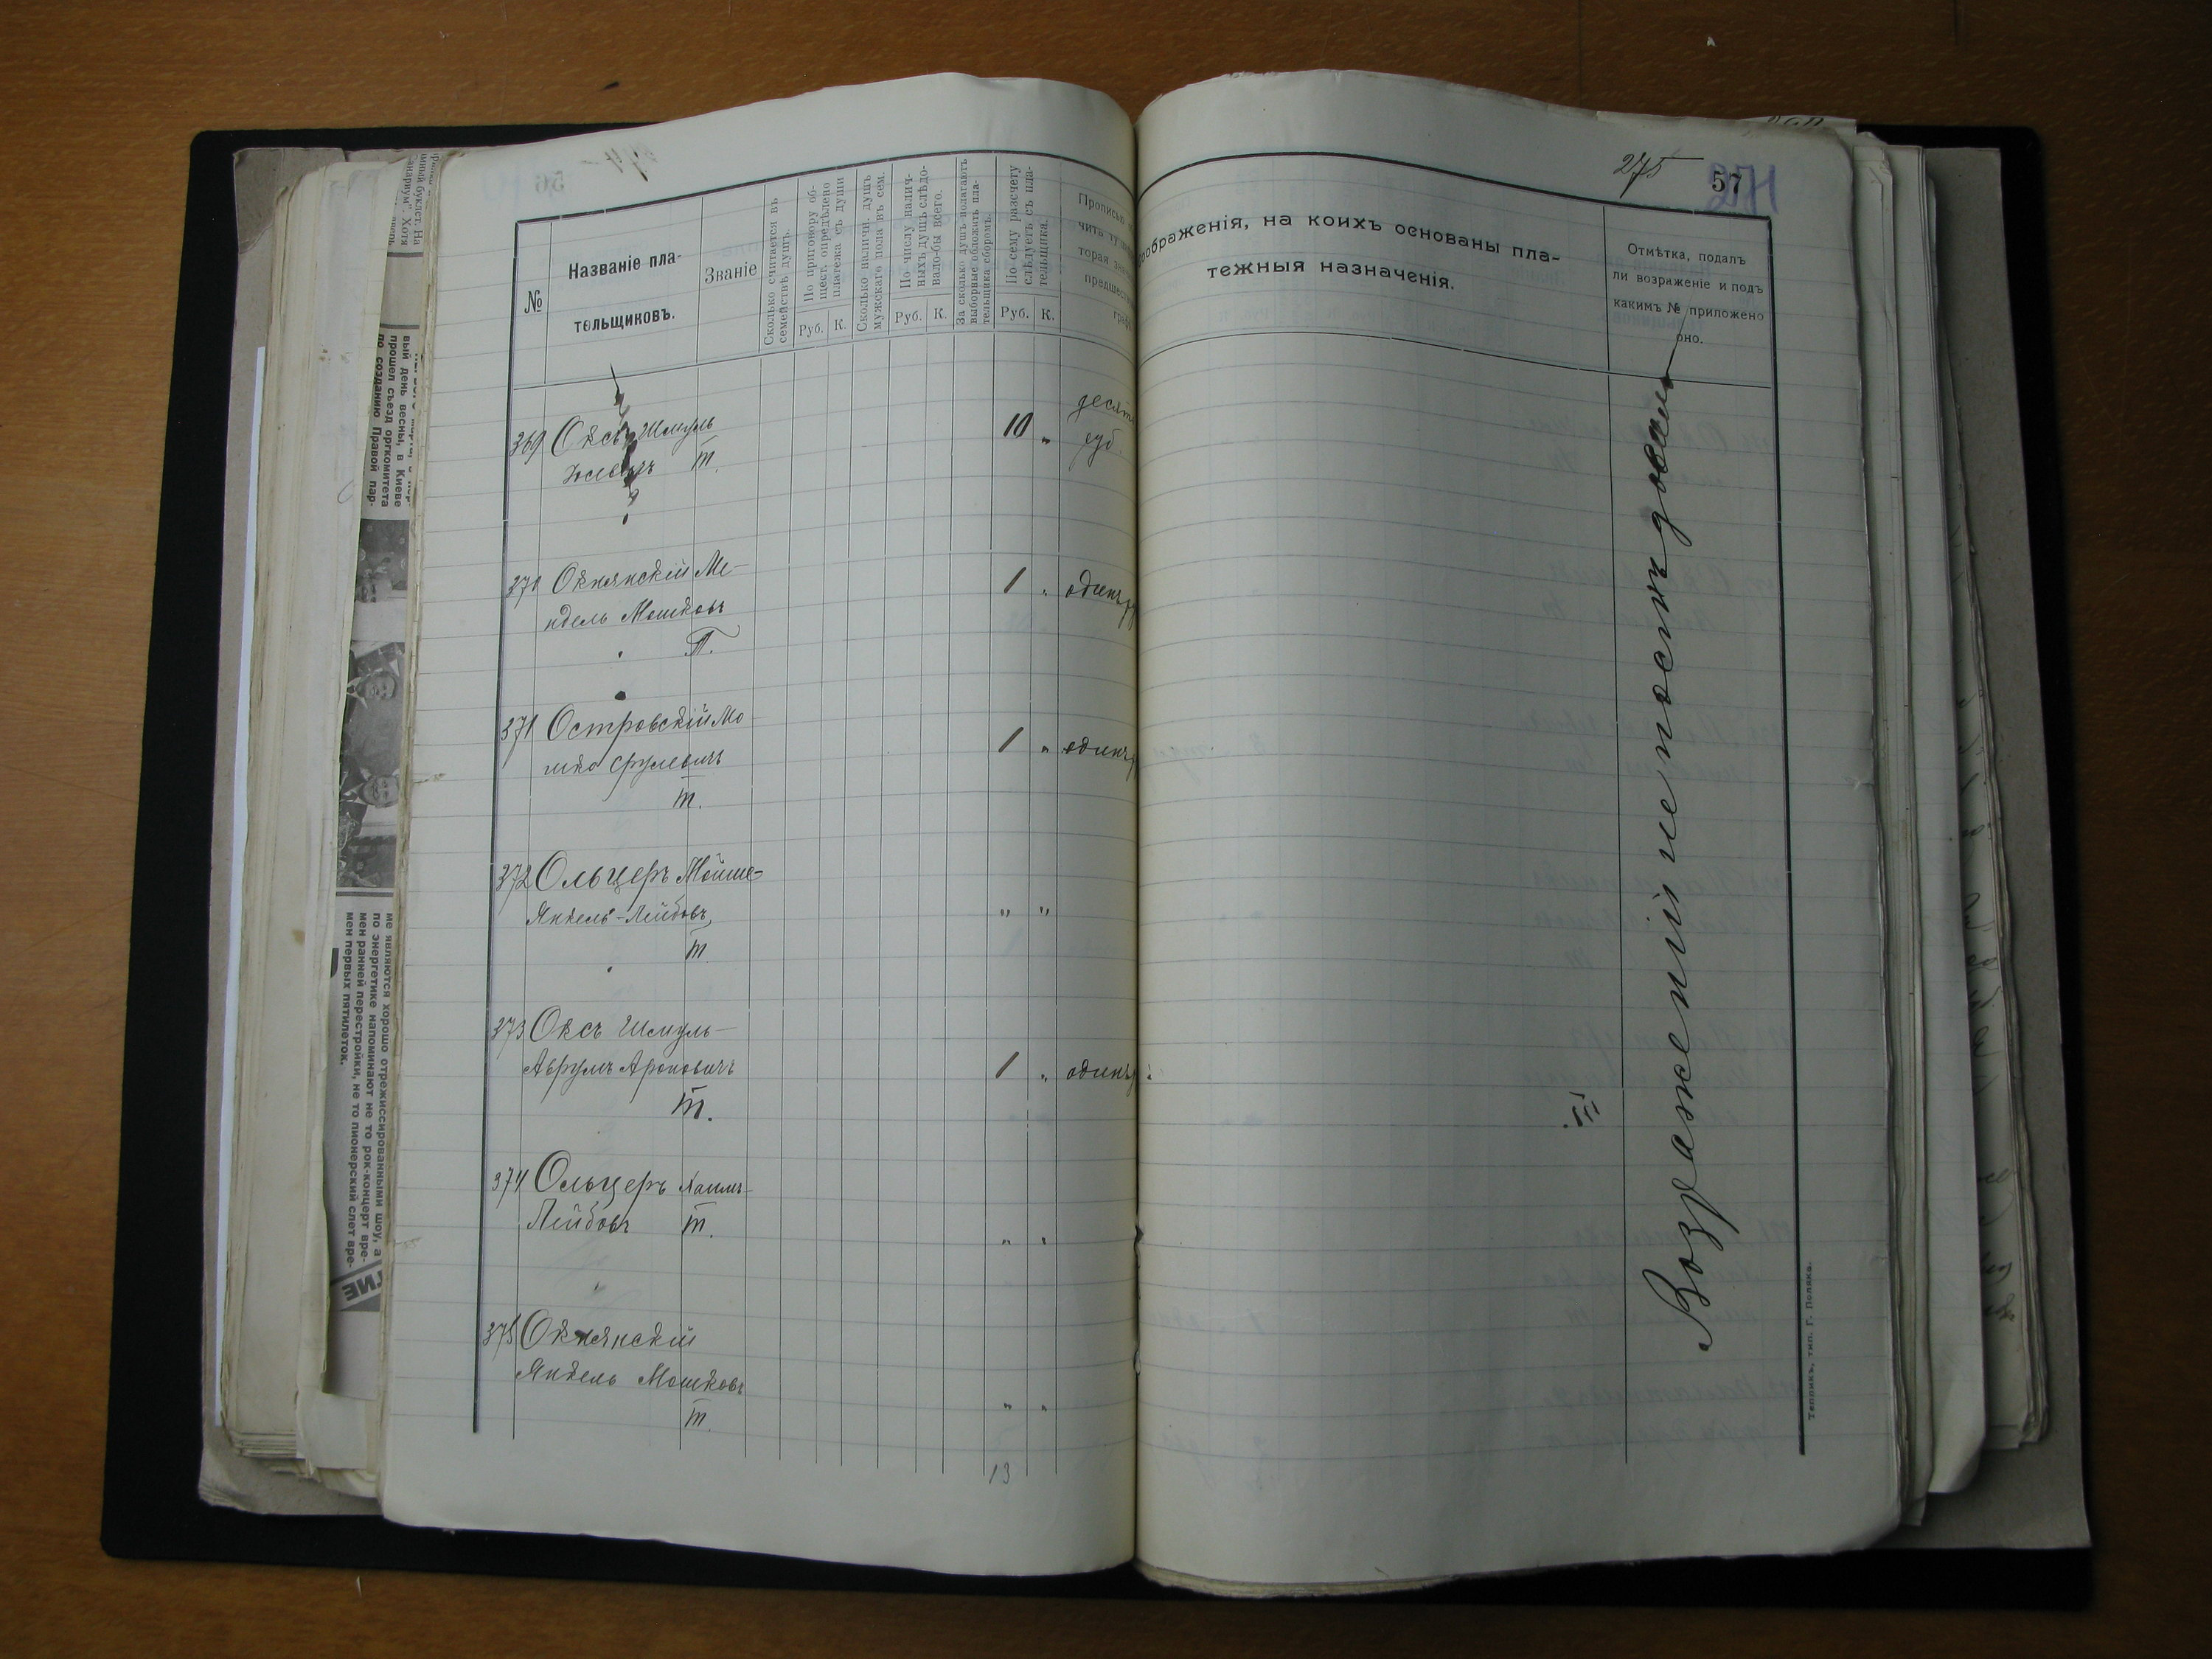 275
57
271
№
Названіе пла-
тельщиковъ.
Званіе
Сколько считается въ
семействѣ душъ.
По приговору об-
щест. опредѣлено
платежа съ души
Руб. К.
Сколько наличн. душъ
мужскаго пола въ сем.
По числу налич-
ныхъ душъ слѣдо-
вало-бы всего.
Руб. К.
За сколько душъ полагаютъ
выборные обложить пла-
тельщика сборомъ.
По сему разсчету
слѣдуетъ съ пла-
тельщика.
Руб. К.
Прописью
чить ту
торая
предшест
граф
ображенія, на коихъ основаны пла-
тежныя назначенія.
Отмѣтка, подалъ
ли возраженіе и подъ
какимъ № приложено
оно.
369 Оксъ Шмуль
т. 10 „ десять
руб.
370 Окнянскій Ме-
ндель Мошковъ
Т. 1 „ одинъ
371 Островскій Мо
шко Срулевичъ
т. 1 „ одинъ
372 Ольцеръ Мойше-
Янкель-Лейбовъ
т. „ „
373 Оксъ Шмуль-
Аврумъ Ароновичъ
т. 1 „ одинъ
374 Ольцеръ Хаимъ-
Лейбовъ т. „ „
375 Окнянскій
Янкель Мошковъ
т. „ „
13
Возраженій не поступало
Тепликъ, тип. Г. Поляка.
вый день весны, в Киеве
прошел съезд оргкомитета
по созданию Правой пар-
ме являются хорошо отрежиссированными шоу, а
по энергетике напоминают не то рок-концерт вре-
мен ранней перестройки, не то пионерский слет вре-
мен первых пятилеток.